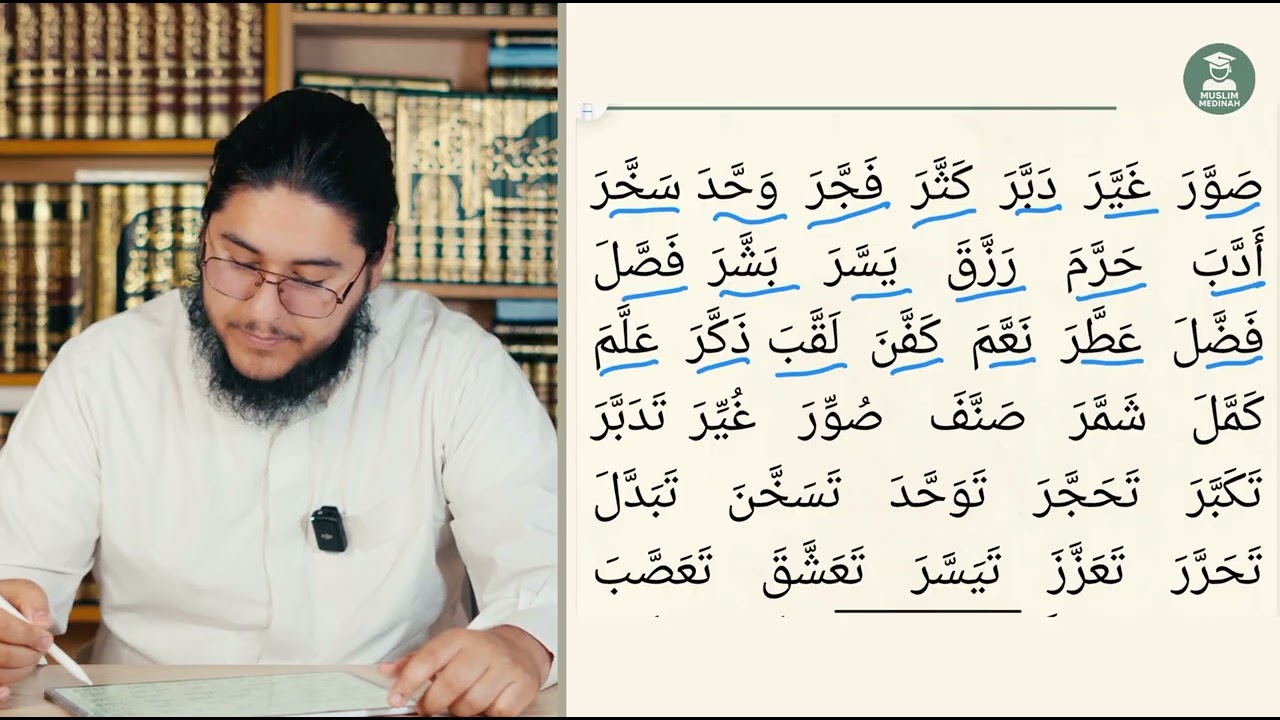 MUSLIM
MEDINAH
صَوَّرَ غَيَّرَ دَبَّرَ كَثَّرَ فَجَّرَ وَحَّدَ سَخَّرَ
أَدَّبَ حَرَّمَ رَزَّقَ يَسَّرَ بَشَّرَ فَصَّلَ
فَضَّلَ عَطَّرَ نَعَّمَ كَفَّنَ لَقَّبَ ذَكَّرَ عَلَّمَ
كَمَّلَ شَمَّرَ صَنَّفَ صُوِّرَ غُيِّرَ تَدَبَّرَ
تَكَبَّرَ تَحَجَّرَ تَوَحَّدَ تَسَخَّنَ تَبَدَّلَ
تَحَرَّرَ تَعَزَّزَ تَيَسَّرَ تَعَشَّقَ تَعَصَّبَ